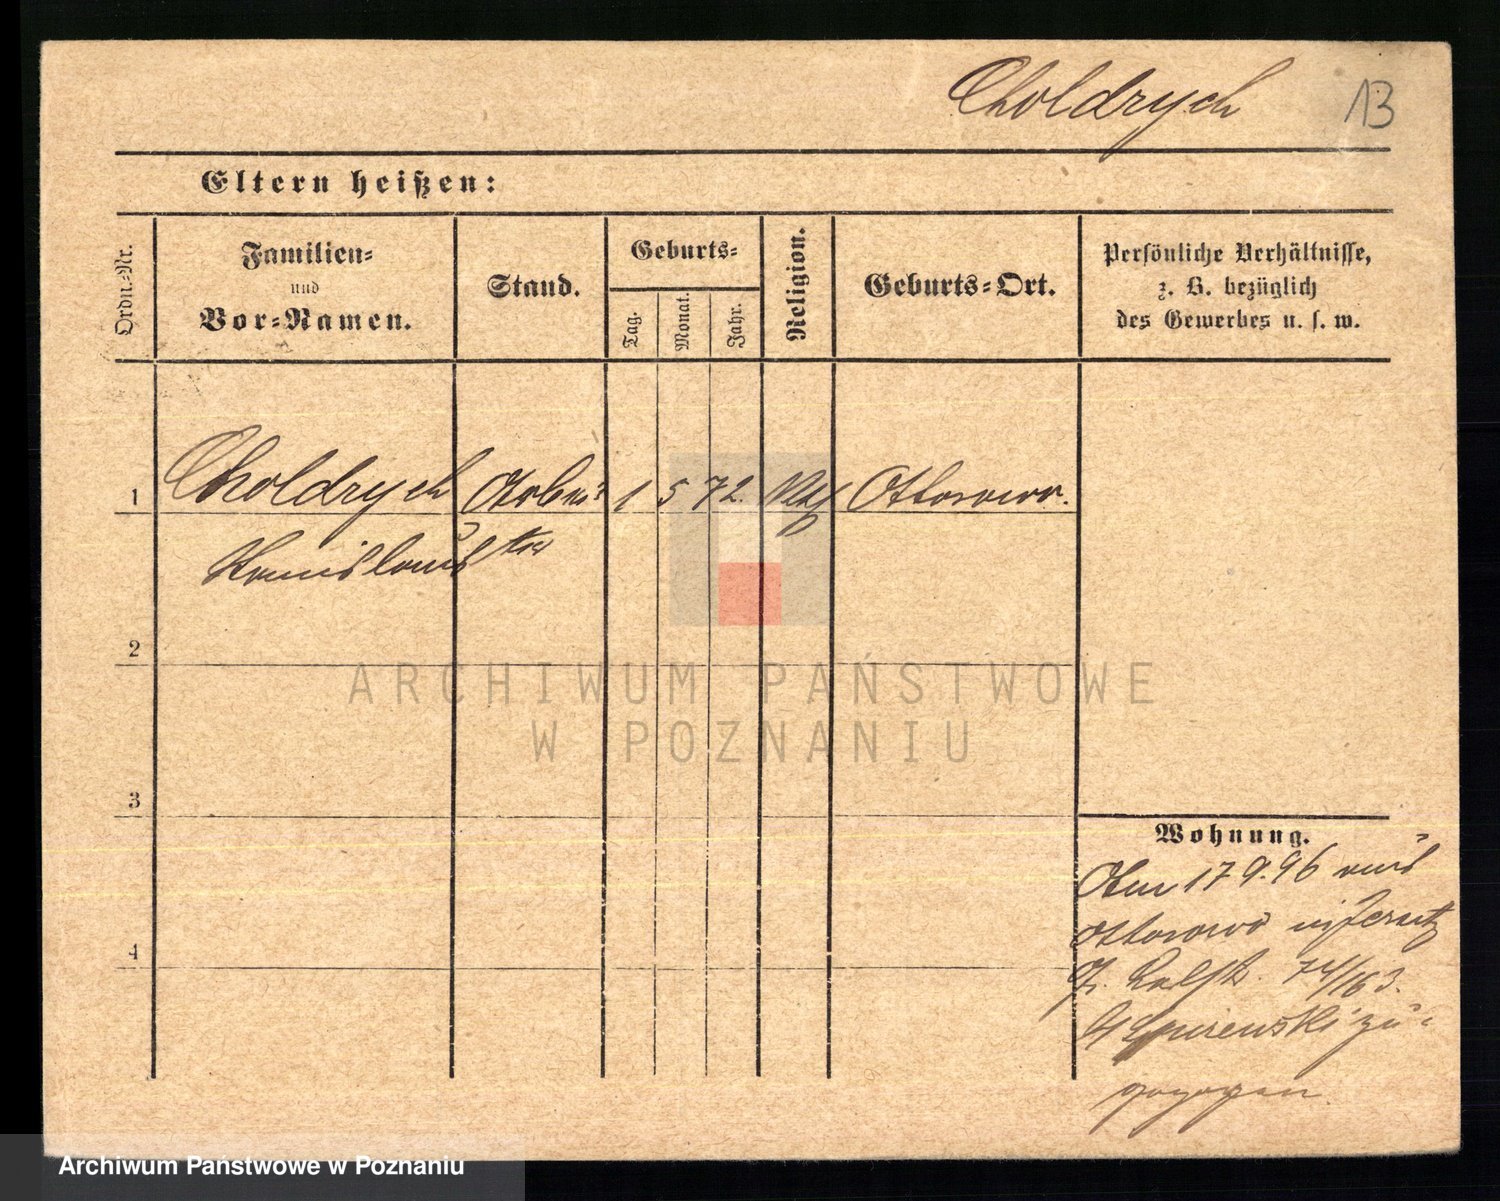 Choldrych 13
Eltern heißen:
Ordn.-Nr.
Familien-
und
Vor-Namen.
Stand.
Geburts-
Tag.
Monat.
Jahr.
Religion.
Geburts-Ort.
Persönliche Verhältnisse,
z. B. bezüglich
des Gewerbes u. s. w.
1 Choldrych 1 5 72. Ottorowo.
Stanislaus
2
3
4
Wohnung.
Am 17 9.96 aus
Ottorowo
74/163.
zu-
gezogen.
ARCHIWUM PAŃSTWOWE
W POZNANIU
Archiwum Państwowe w Poznaniu